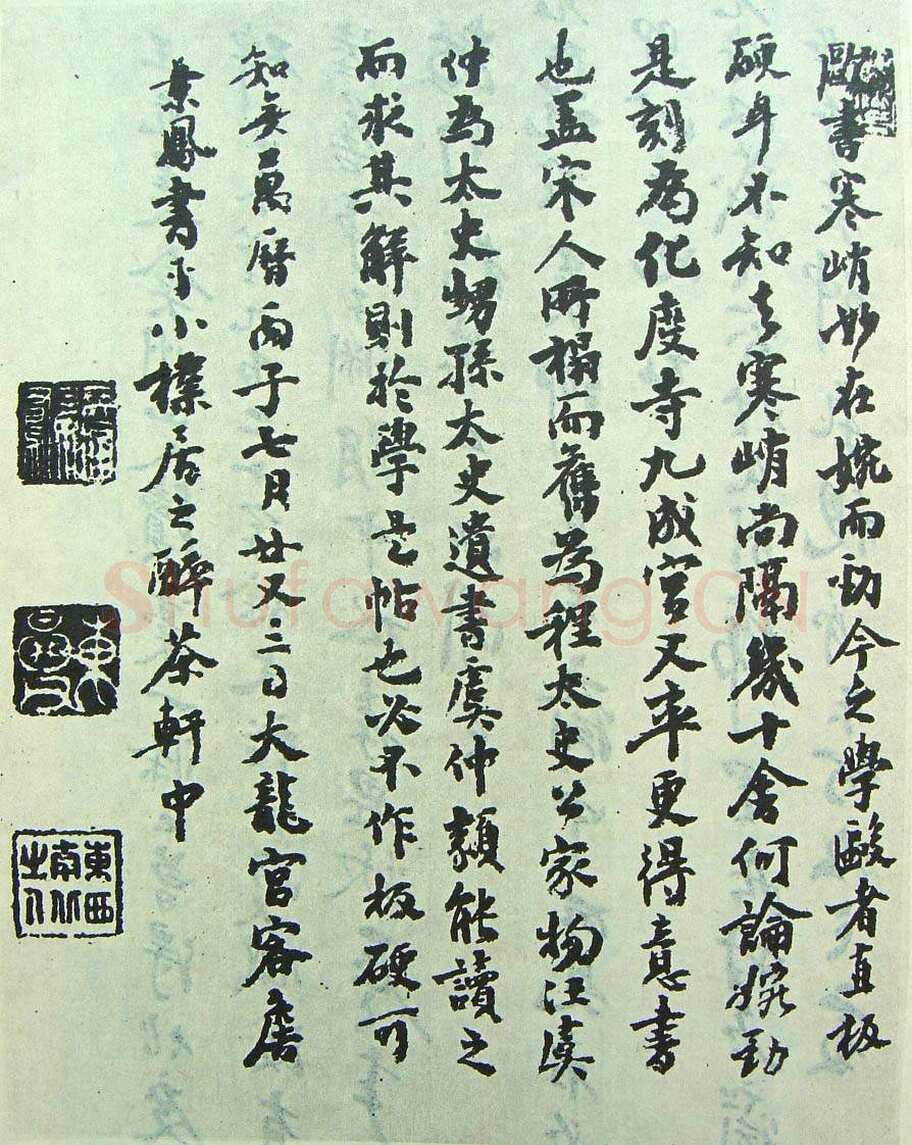 歐書寒峭妙在婉而勁今之學歐者直板
硬耳不知去寒峭尚隔幾十舍何論婉勁
是刻為化度寺九成宮又率更得意書
也盖宋人所榻而舊為程太史公家物汪虞
仲為太史甥孫太史遺書虞仲類能讀之
而求其解則於學是帖也必不作板硬可
知矣萬曆丙子七月廿又三日大龍宮客詹
景鳳書于小檏居之醉茶軒中
東圖
東西南北之人
shufawang.cn